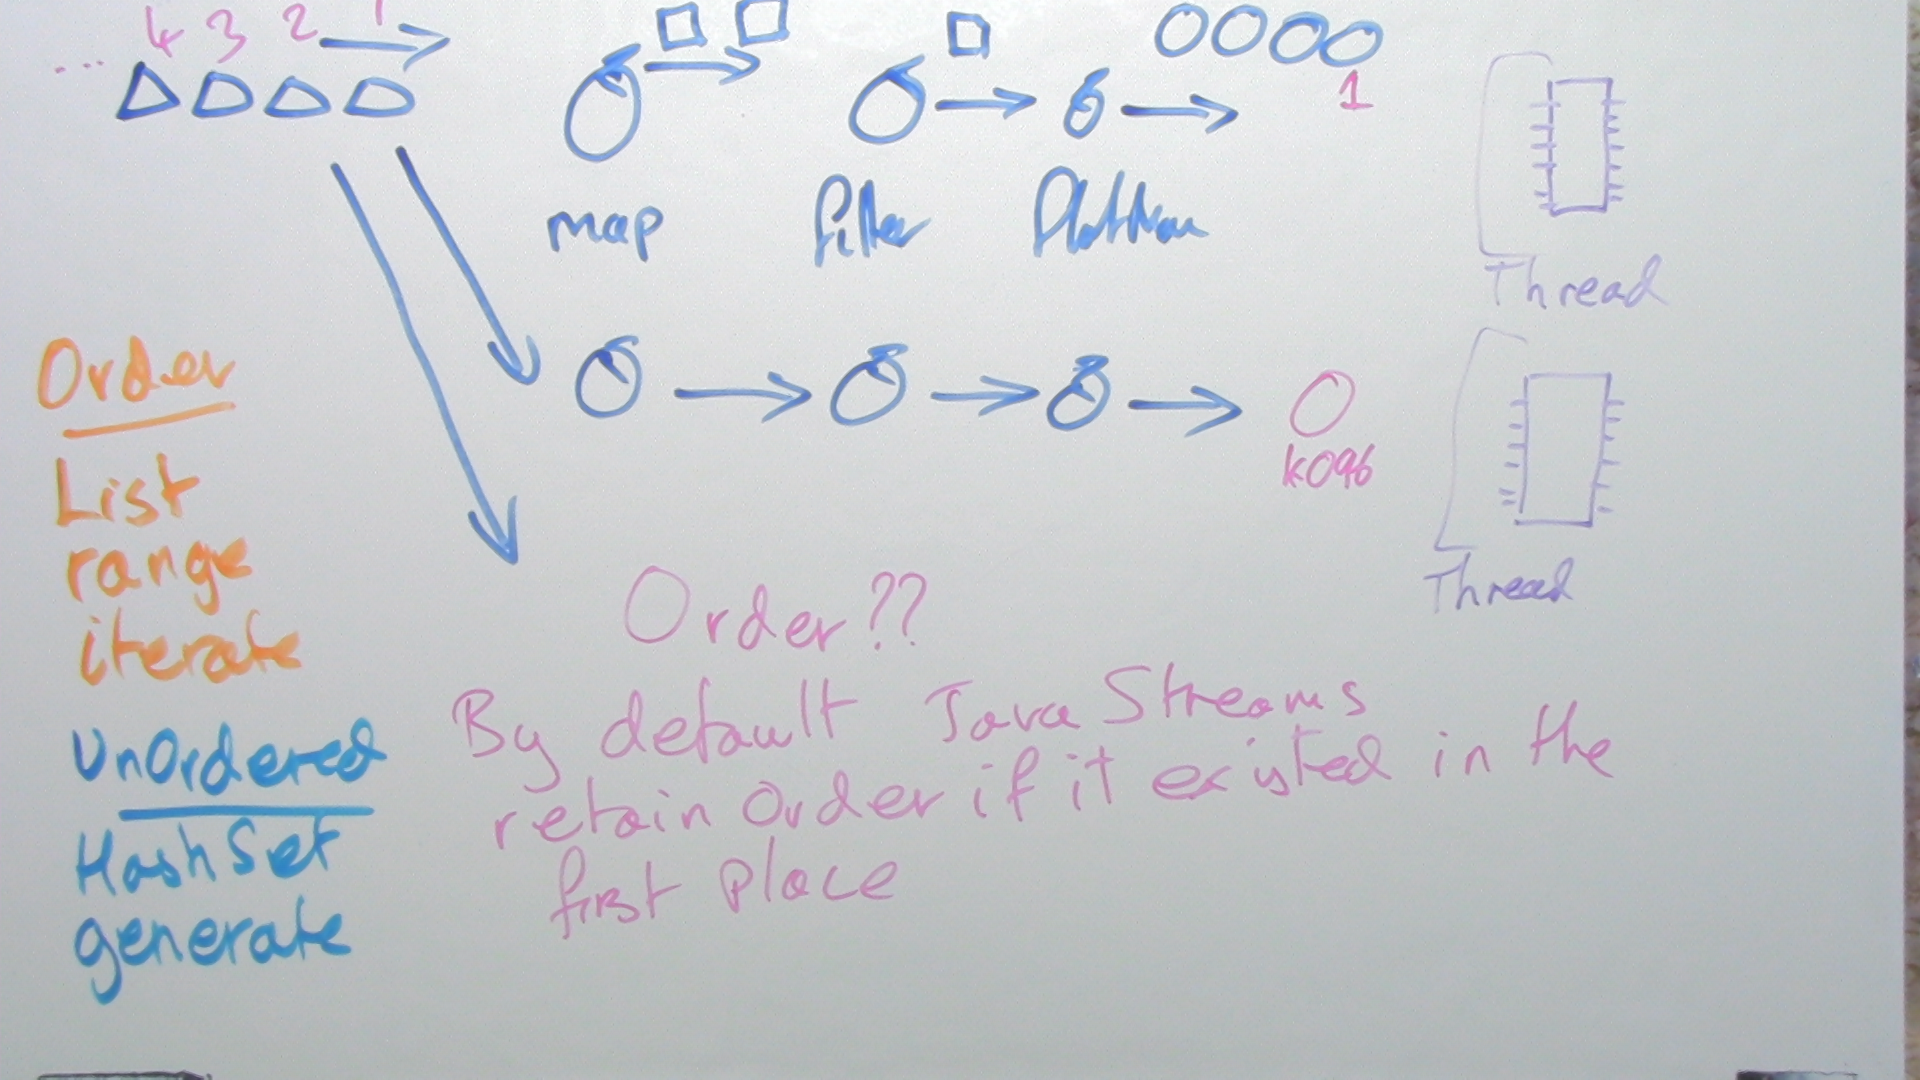 ... 4 3 2 1
1
map filter flatMap
Thread
k096
Thread
Order
List
range
iterate
UnOrdered
HashSet
generate
Order??
By default Java Streams
retain order if it existed in the
first place